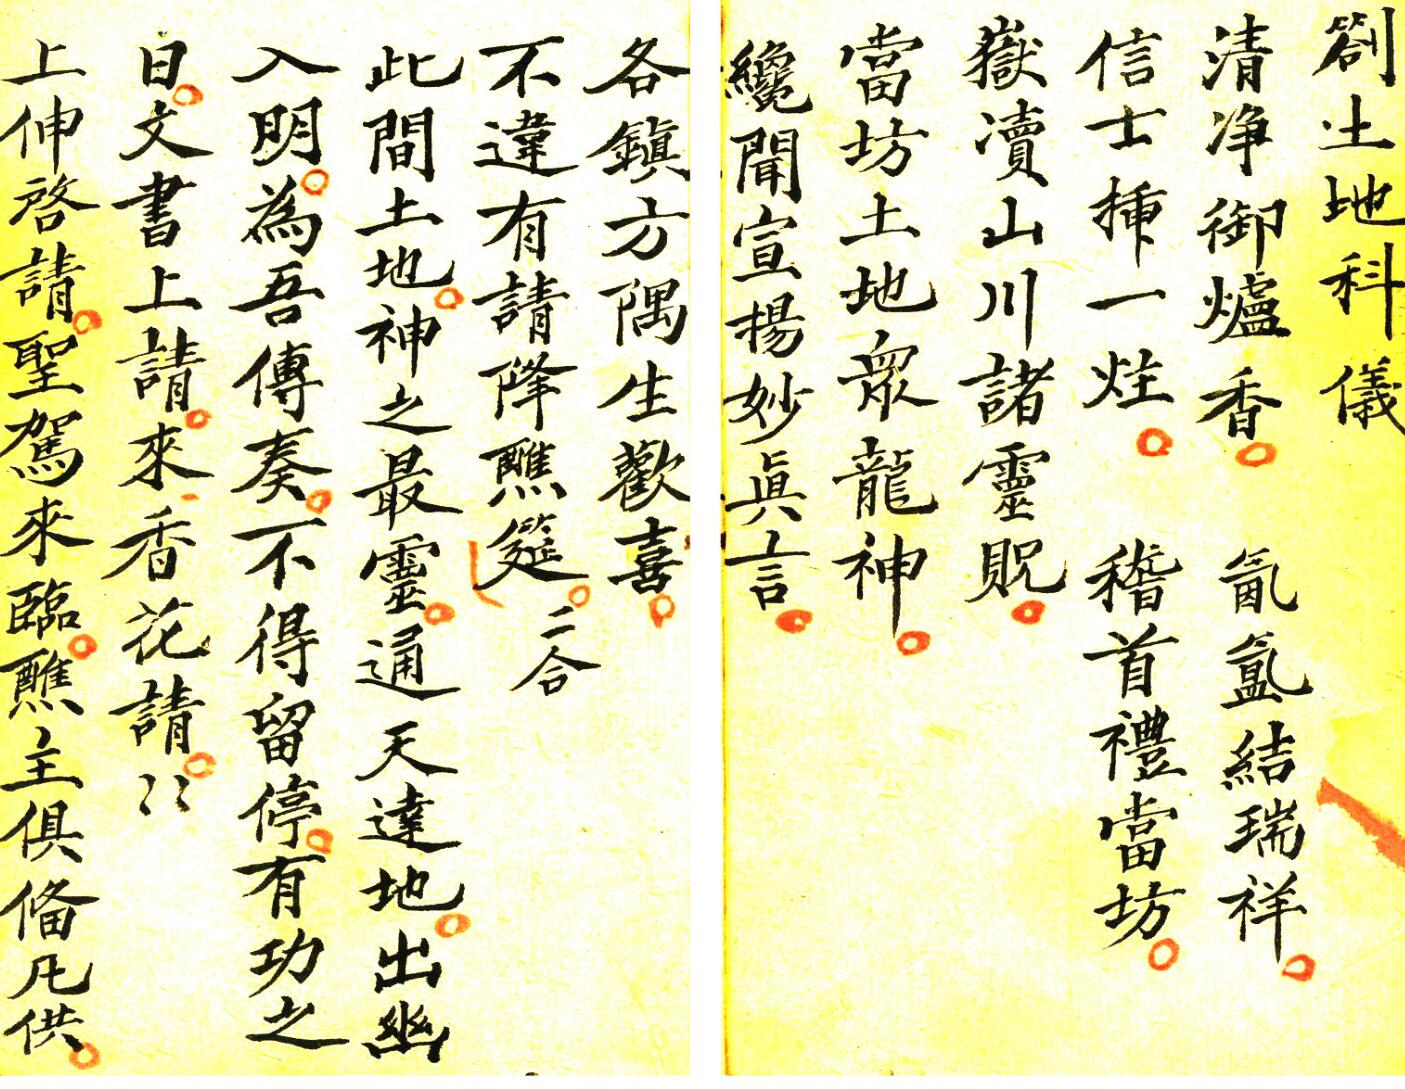 劄土地科儀
清净御爐香　氤氳結瑞祥
信士揷一炷　稽首禮當坊
嶽瀆山川諸靈貺
當坊土地眾龍神
纔聞宣揚妙眞言
各鎮方隅生歡喜
不違有請降醮筵 二合
此間土地神之最靈通天達地出幽
入明為吾傳奏不得留停有功之
日文書上請來香花請〻
上伸啓請聖駕來臨醮主俱俻凡供